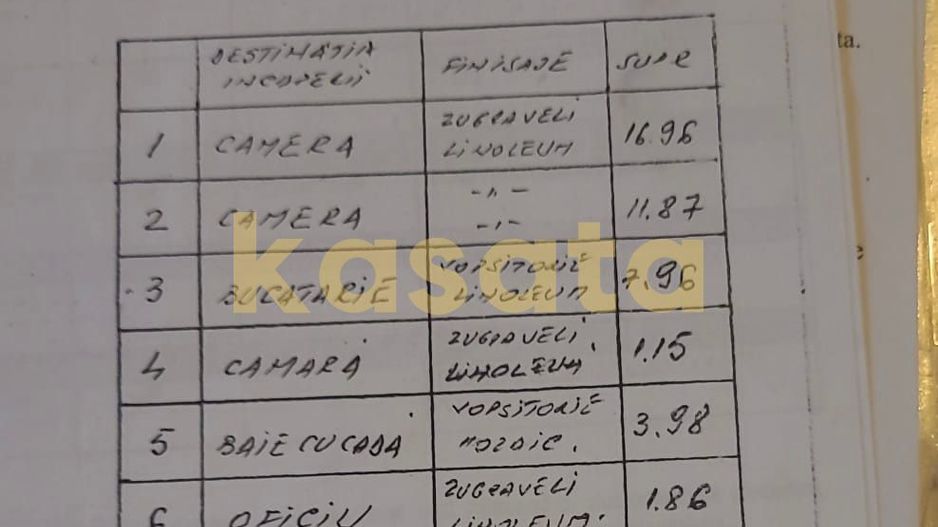 DESTINATIA FINISAJE SUPR
INCAPERII
1 CAMERA ZUGRAVELI 16.96
LINOLEUM
2 CAMERA -"- 11.87
-"-
3 BUCATARIE VOPSITORIE 7.96
LINOLEUM
4 CAMARA ZUGRAVELI 1.15
LINOLEUM
5 BAIE CU CADA VOPSITORIE 3.98
MOZAIC.
6 OFICIU ZUGRAVELI 1.86
LINOLEUM.
ta.
kasata